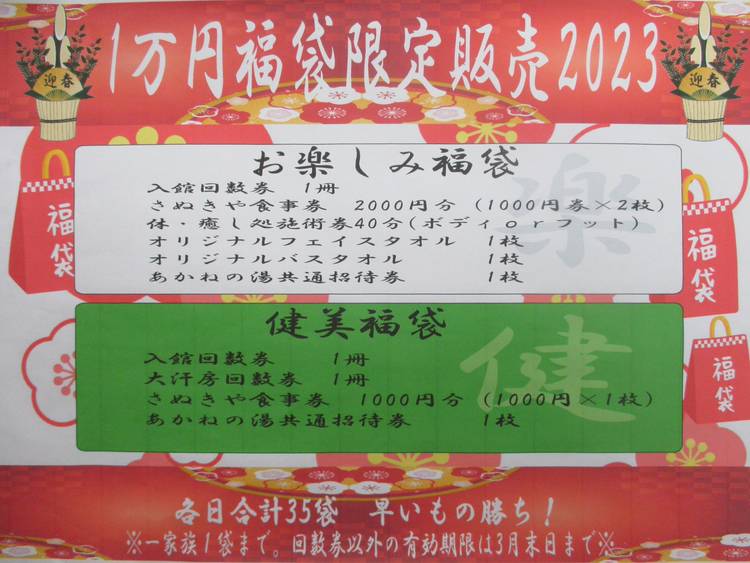 1万円福袋限定販売2023
迎春
迎春
お楽しみ福袋
楽
入館回数券 1冊
さぬきや食事券 2000円分 (1000円券×2枚)
体・癒し処施術券40分(ボディorフット)
オリジナルフェイスタオル 1枚
オリジナルバスタオル 1枚
あかねの湯共通招待券 1枚
福袋
福袋
健美福袋
健
入館回数券 1冊
大汗房回数券 1冊
さぬきや食事券 1000円分 (1000円×1枚)
あかねの湯共通招待券 1枚
福袋
各日合計35袋 早いもの勝ち!
※一家族1袋まで。回数券以外の有効期限は3月末日まで※